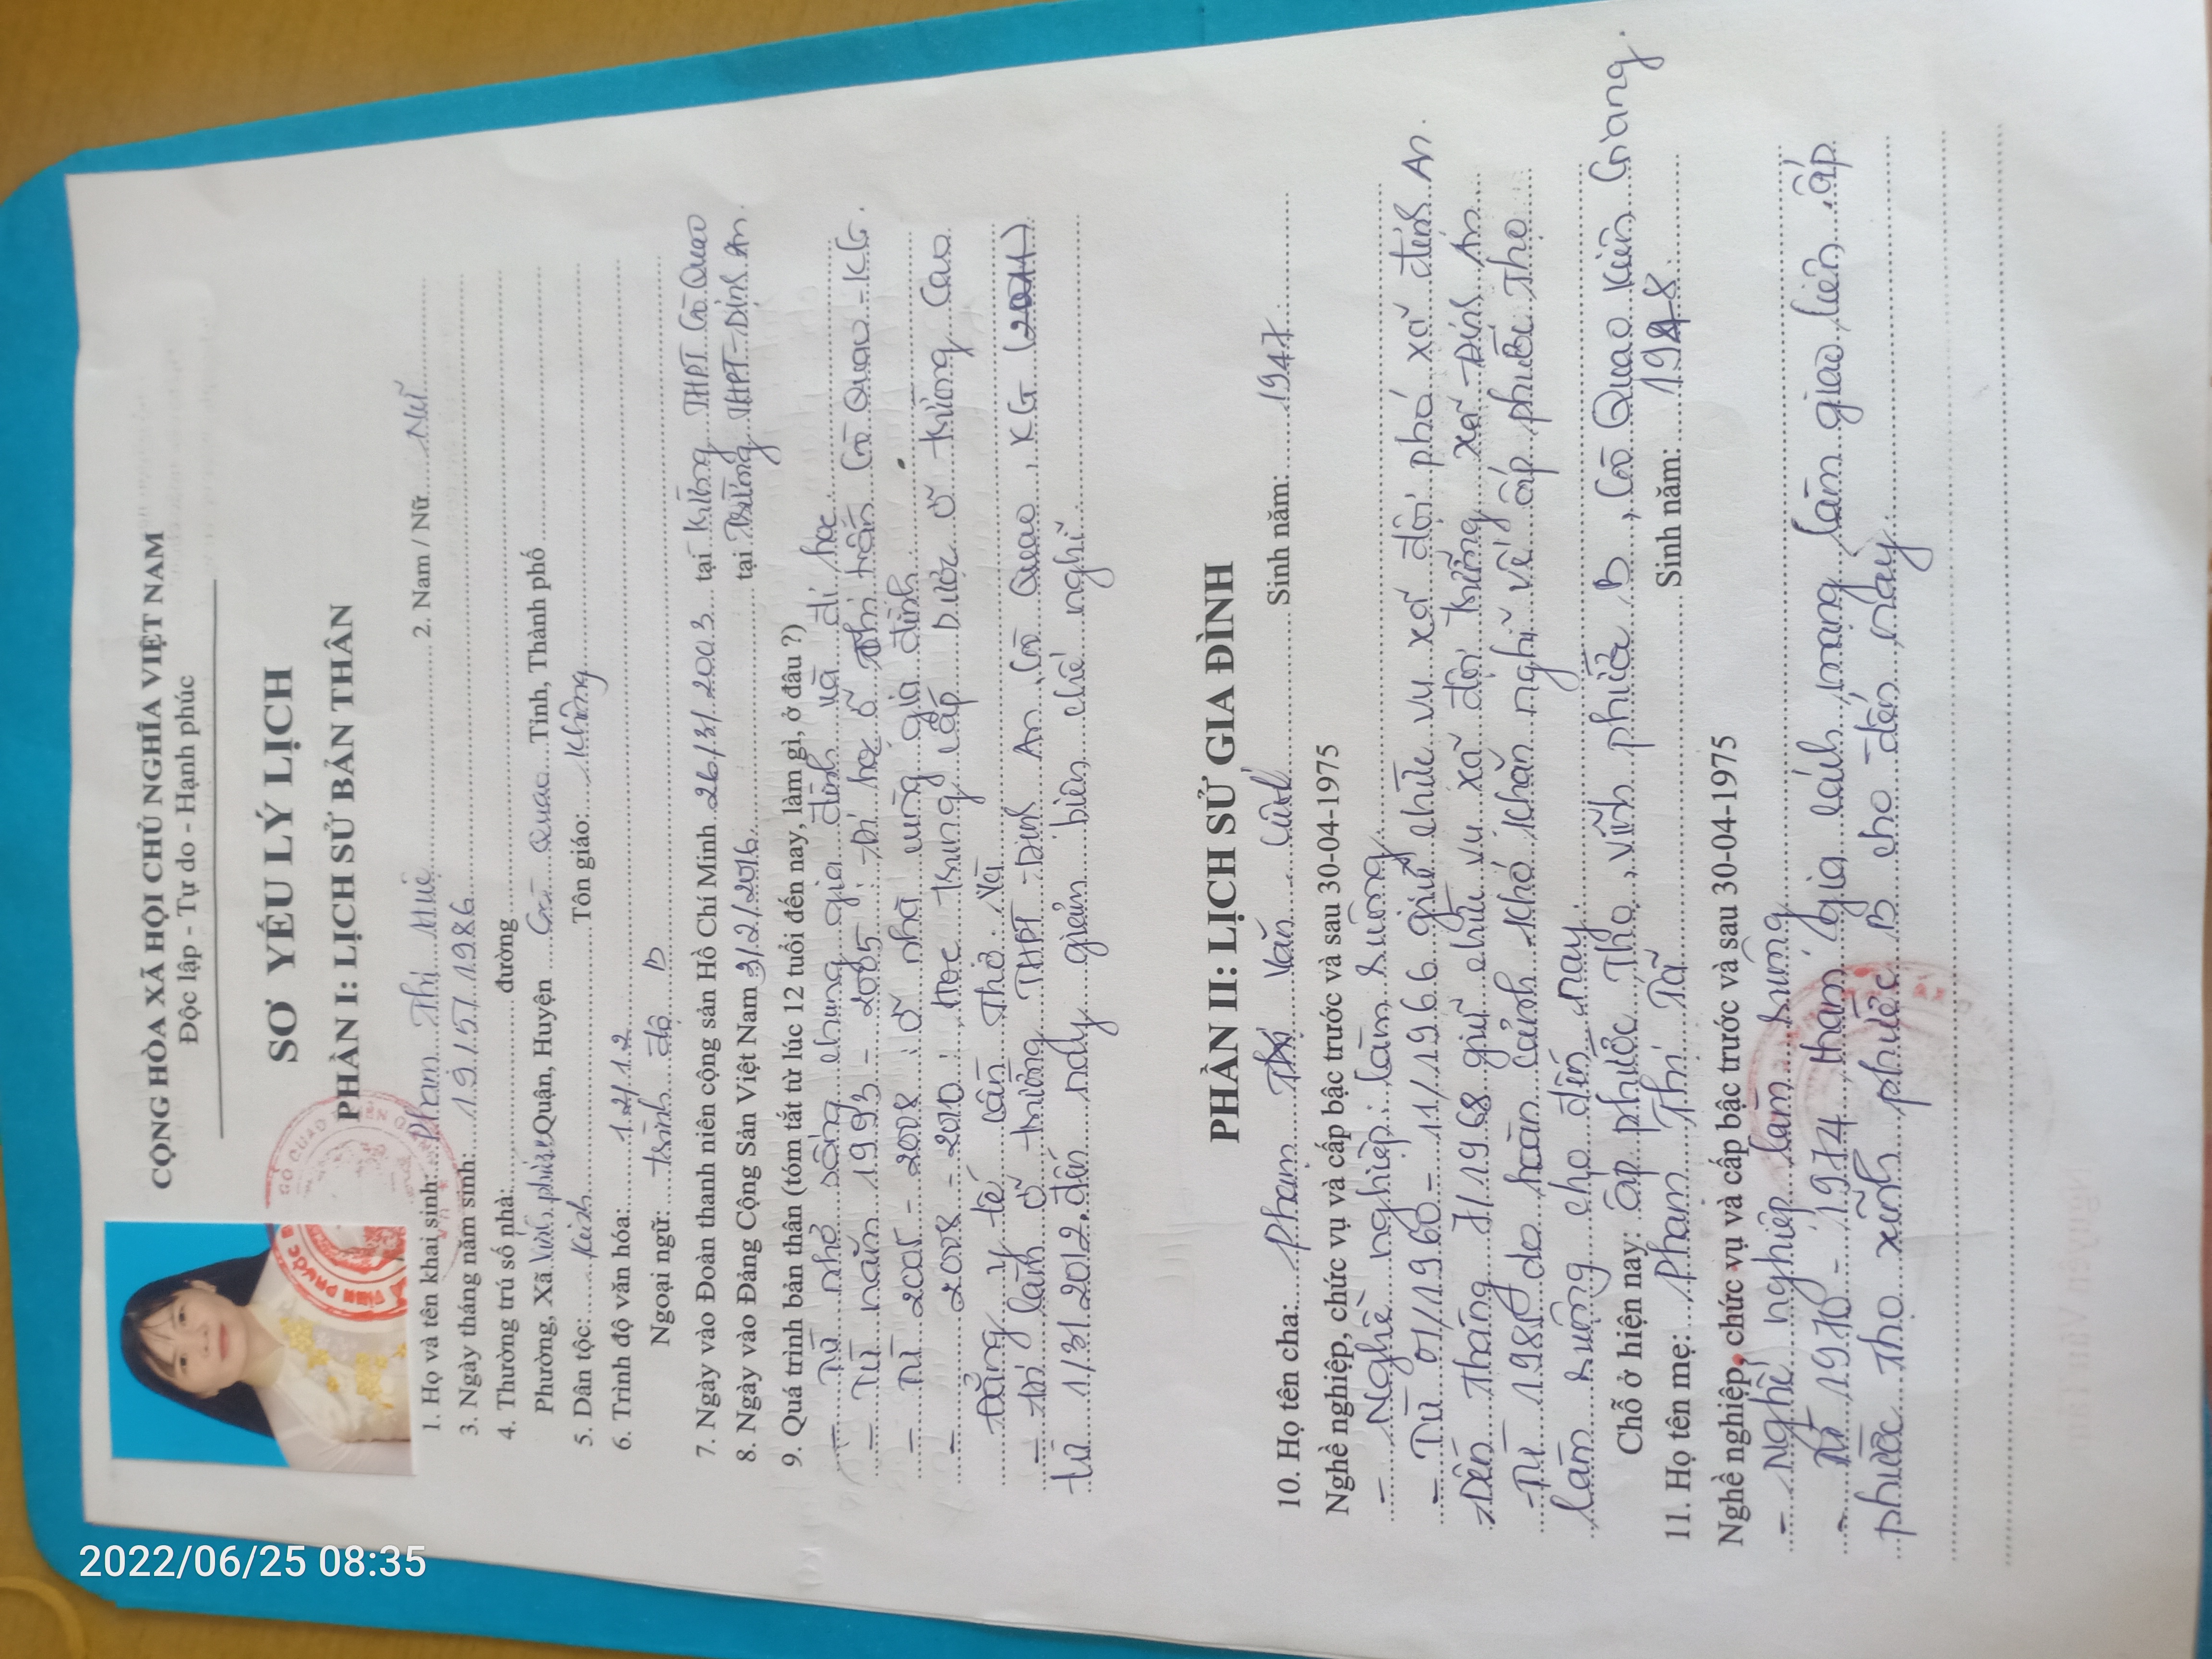 2022/06/25 08:35
CỘNG HÒA XÃ HỘI CHỦ NGHĨA VIỆT NAM
Độc lập - Tự do - Hạnh phúc
SƠ YẾU LÝ LỊCH
PHẦN I: LỊCH SỬ BẢN THÂN
1. Họ và tên khai sinh: Phạm Thị Huệ 2. Nam / Nữ Nữ
3. Ngày tháng năm sinh: 19/5/1986
4. Thường trú số nhà: đường
Phường, Xã Quận, Huyện Gò Quao Tỉnh, Thành phố
5. Dân tộc: Kinh Tôn giáo: Không
6. Trình độ văn hóa: 12/12
Ngoại ngữ: trình độ B
7. Ngày vào Đoàn thanh niên cộng sản Hồ Chí Minh 26/3/2003 tại trường THPT Gò Quao
8. Ngày vào Đảng Cộng Sản Việt Nam 3/2/2016 tại Trường THPT Định An.
9. Quá trình bản thân (tóm tắt từ lúc 12 tuổi đến nay, làm gì, ở đâu ?)
- Từ nhỏ sống chung gia đình và đi học
- Từ năm 1993 - 2005: Đi học ở Thị trấn Gò Quao - KG.
- Từ 2005 - 2008: ở nhà cùng gia đình.
- 2008 - 2010: Học trung cấp Dược ở trường Cao
Đẳng y tế Cần Thơ. Và
làm ở trường THPT Định An, Gò Quao, KG
từ 1/3/2012 đến nay giản biên chế nghỉ
PHẦN II: LỊCH SỬ GIA ĐÌNH
10. Họ tên cha: Phạm Văn Sinh năm: 1947
Nghề nghiệp, chức vụ và cấp bậc trước và sau 30-04-1975
- Nghề nghiệp: làm ruộng
- Từ 01/1960 - 11/1966 giữ chức vụ xã đội phó xã định An.
- Đến tháng 1968 giữ chức vụ xã đội trưởng xã Định An
- Từ do hoàn cảnh khó khăn nghỉ về ấp phước Thọ
làm ruộng cho đến nay.
Chỗ ở hiện nay: ấp phước Thọ, vĩnh phước B, Gò Quao Kiên Giang.
11. Họ tên mẹ: Phạm Thị Sinh năm:
Nghề nghiệp, chức vụ và cấp bậc trước và sau 30-04-1975
- Nghề nghiệp làm ruộng
- Từ 1970 - 1974 tham gia cách mạng làm giao liên ấp
phước Thọ xã vĩnh phước B cho đến nay.